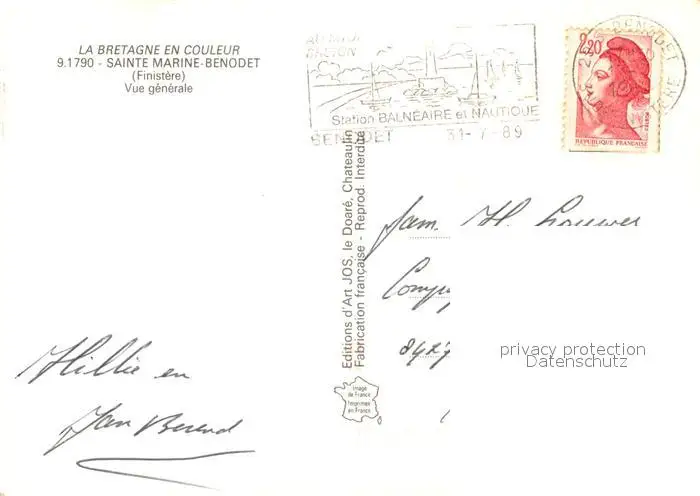 LA BRETAGNE EN COULEUR
9.1790 - SAINTE MARINE-BENODET
(Finistère)
Vue générale
BRETON
Station BALNÉAIRE et NAUTIQUE
BENODET 31-7-89
BENODET
2,20
REPUBLIQUE FRANÇAISE
Editions d'Art JOS, le Doaré, Chateaulin
Fabrication française - Reprod. Interdite
fam. H. Louwes
Comp
8427
privacy protection
Datenschutz
Hillie en
Jan Berend
Image
de France
Imprimée
en France